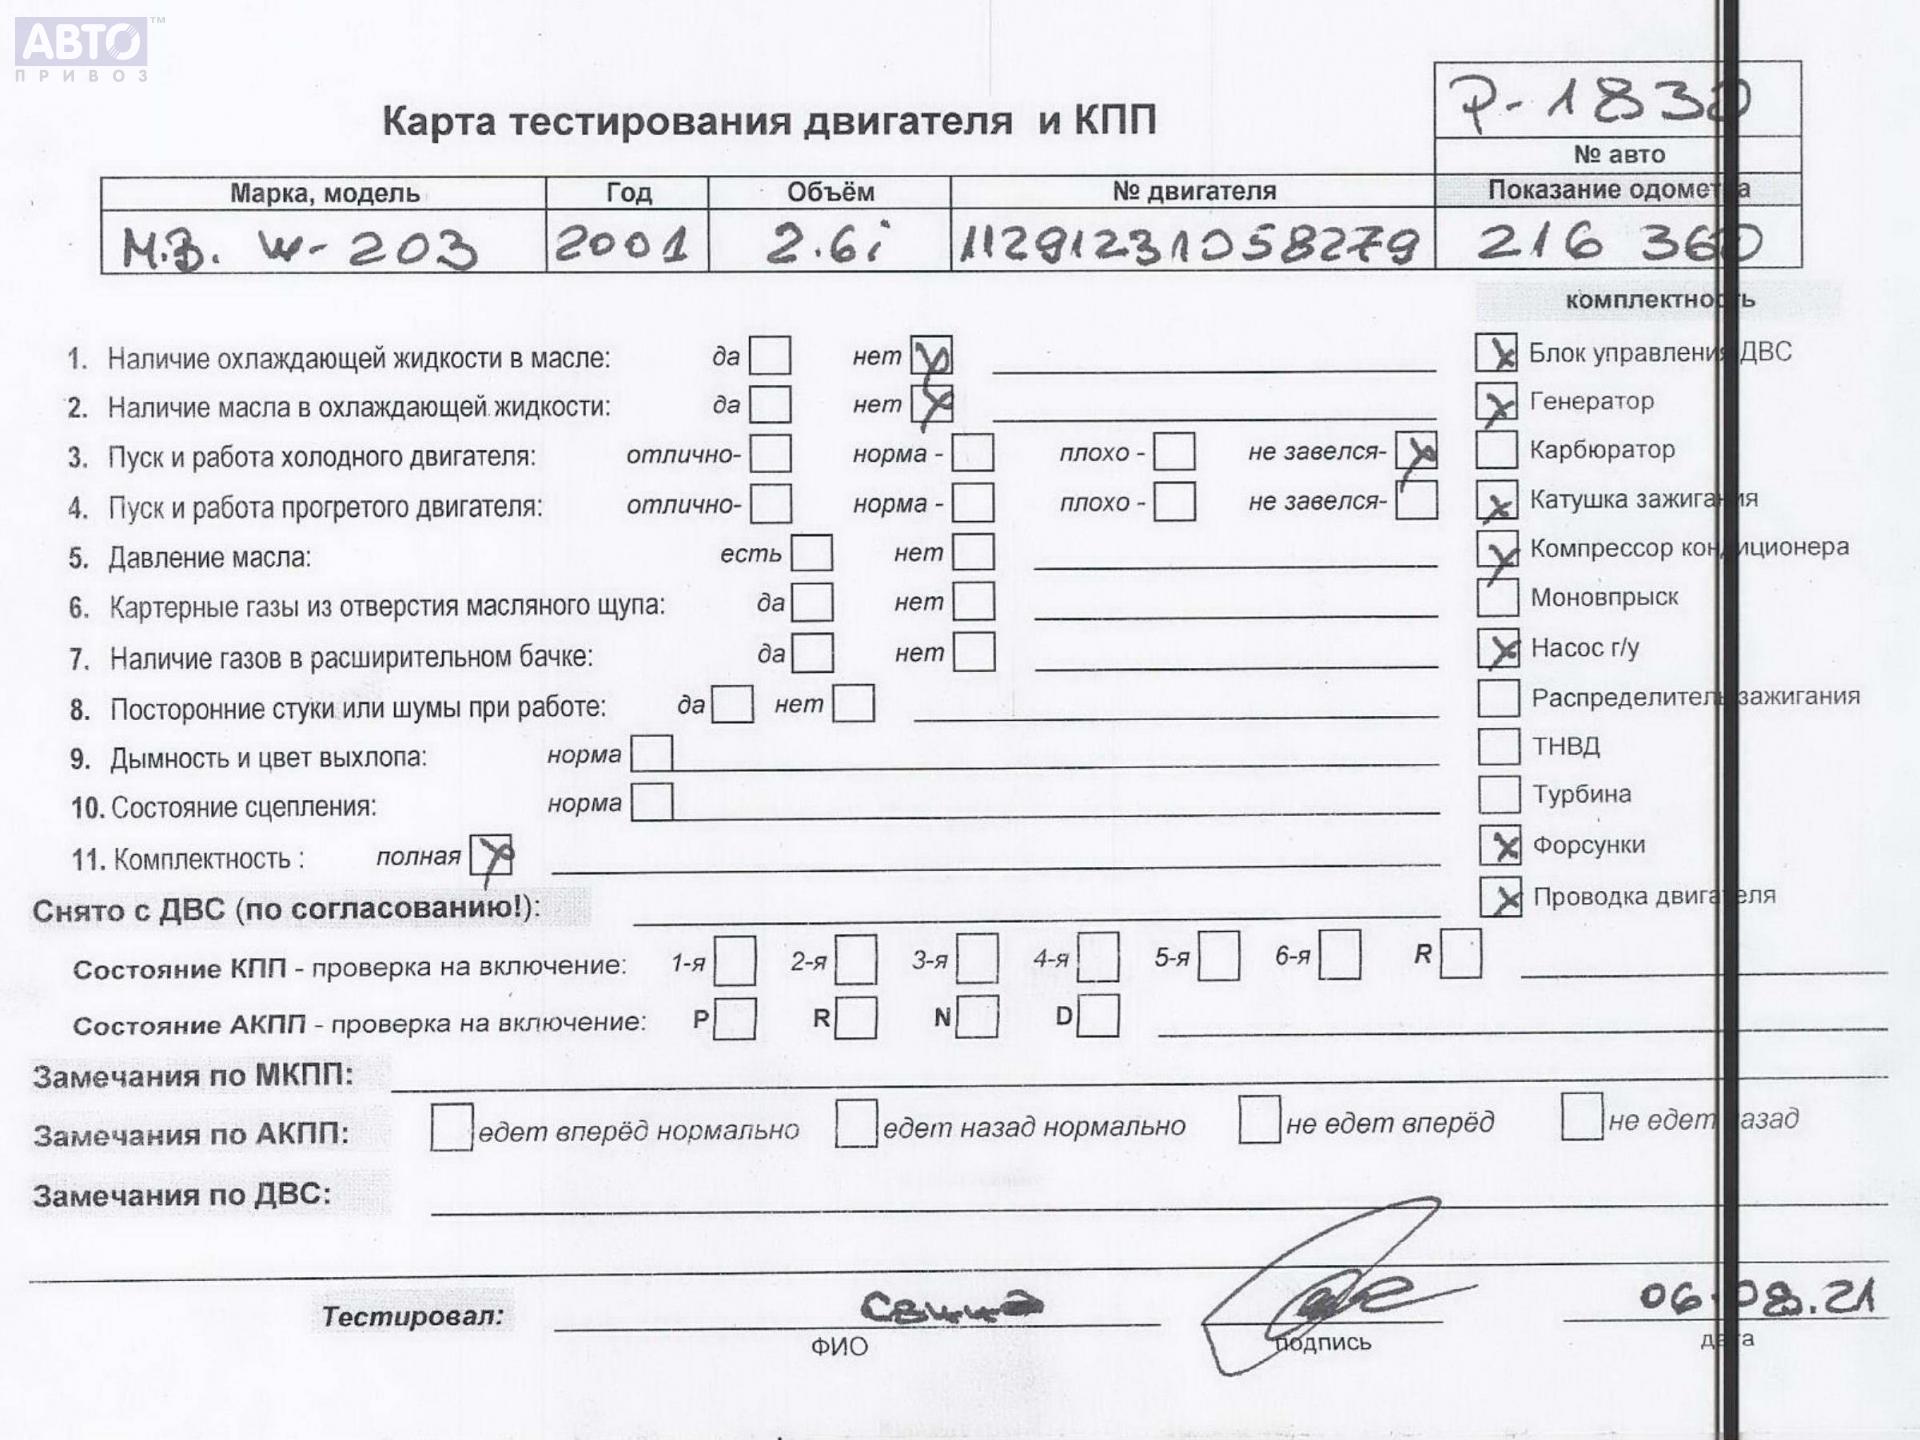 АВТО™
ПРИВОЗ
P-1830
Карта тестирования двигателя и КПП
№ авто
Марка, модель Год Объём № двигателя Показание одометра
M.B. W-203 2001 2.6i 11291231058279 216 360
комплектность
1. Наличие охлаждающей жидкости в масле: да нет Блок управления ДВС
2. Наличие масла в охлаждающей жидкости: да нет Генератор
3. Пуск и работа холодного двигателя: отлично- норма - плохо - не завелся- Карбюратор
4. Пуск и работа прогретого двигателя: отлично- норма - плохо - не завелся- Катушка зажигания
5. Давление масла: есть нет Компрессор кондиционера
6. Картерные газы из отверстия масляного щупа: да нет Моновпрыск
7. Наличие газов в расширительном бачке: да нет Насос г/у
8. Посторонние стуки или шумы при работе: да нет Распределитель зажигания
9. Дымность и цвет выхлопа: норма ТНВД
10. Состояние сцепления: норма Турбина
11. Комплектность : полная Форсунки
Снято с ДВС (по согласованию!): Проводка двигателя
Состояние КПП - проверка на включение: 1-я 2-я 3-я 4-я 5-я 6-я R
Состояние АКПП - проверка на включение: P R N D
Замечания по МКПП:
Замечания по АКПП: едет вперёд нормально едет назад нормально не едет вперёд не едет назад
Замечания по ДВС:
Тестировал: 06.08.21
ФИО подпись дата